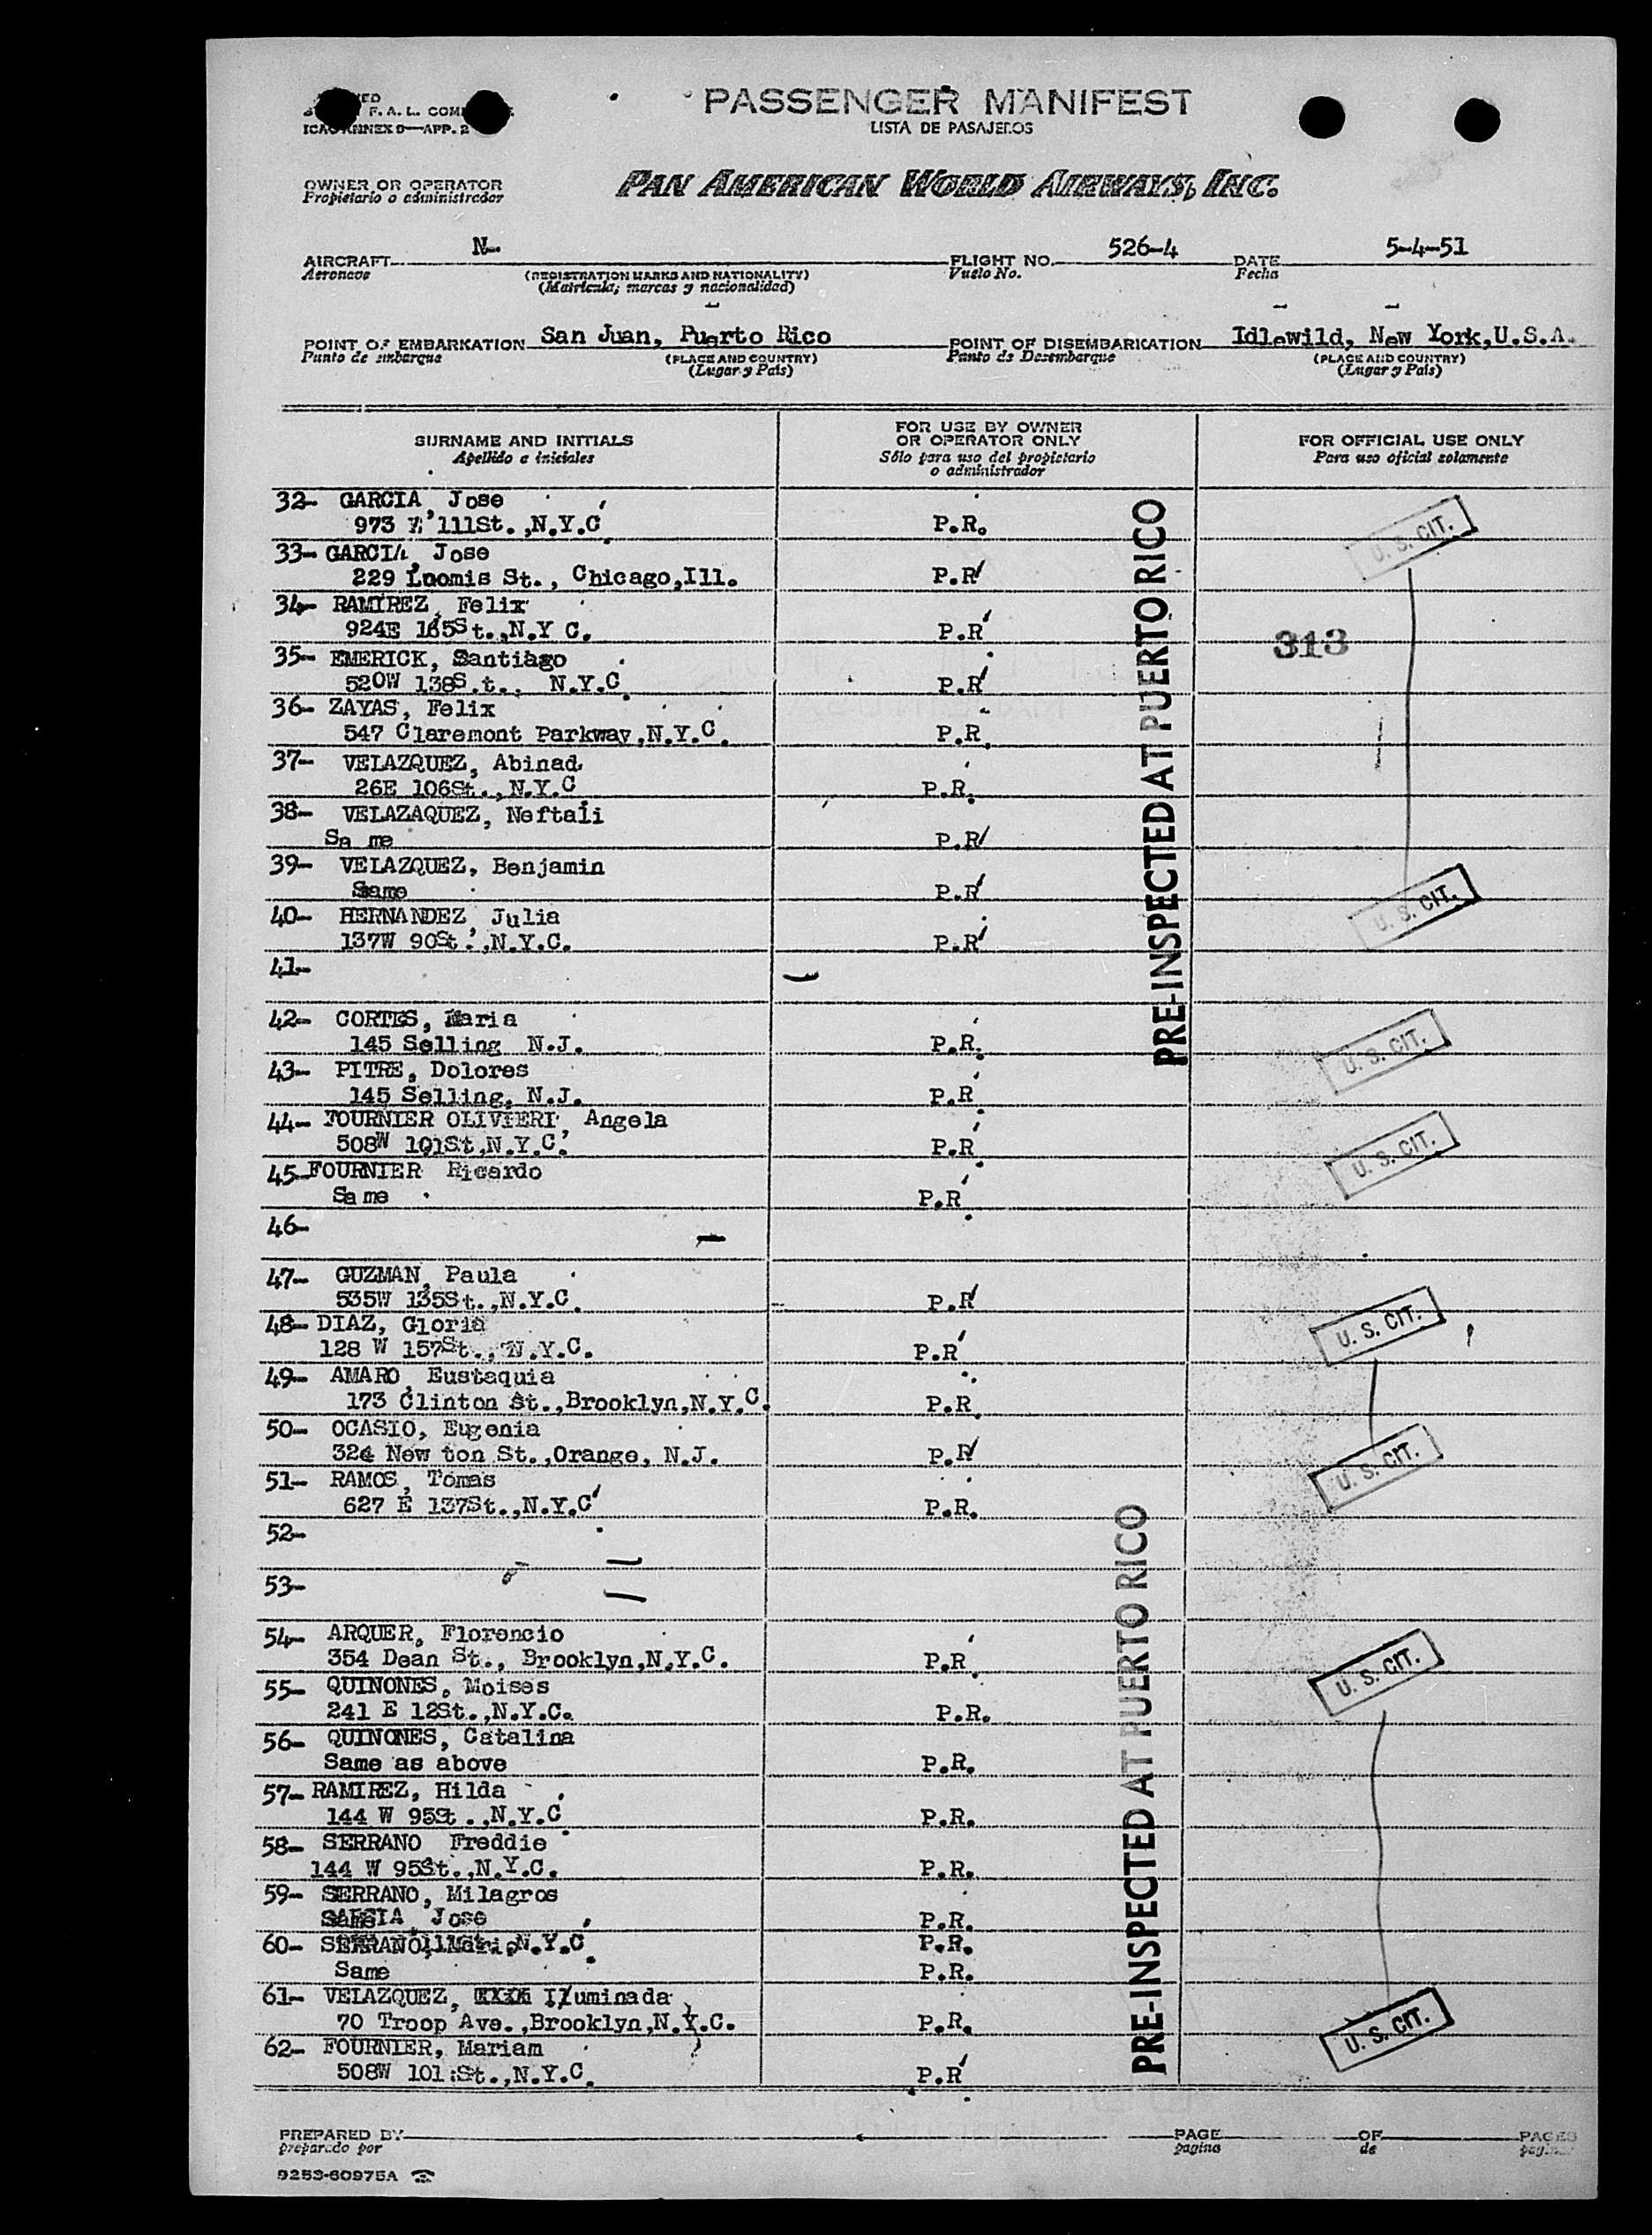 F. A. L. COM
ICAO ANNEX 9—APP. 2
PASSENGER MANIFEST
LISTA DE PASAJEROS
OWNER OR OPERATOR
Propietario o administrador
PAN AMERICAN WORLD AIRWAYS, INC.
AIRCRAFT N-
Aeronave
(REGISTRATION MARKS AND NATIONALITY)
(Matricula; marcas y nacionalidad)
FLIGHT NO. 526-4
Vuelo No.
DATE 5-4-51
Fecha
POINT OF EMBARKATION San Juan, Puerto Rico
Punto de embarque
(PLACE AND COUNTRY)
(Lugar y País)
POINT OF DISEMBARKATION Idlewild, New York,U.S.A.
Punto de Desembarque
(PLACE AND COUNTRY)
(Lugar y País)
SURNAME AND INITIALS
Apellido e iniciales
FOR USE BY OWNER
OR OPERATOR ONLY
Sólo para uso del propietario
o administrador
FOR OFFICIAL USE ONLY
Para uso oficial solamente
32- GARCIA, Jose
973 111St.,N.Y.C P.R.
U. S. CIT.
33- GARCIA, Jose
229 Loomis St., Chicago,Ill. P.R
34- RAMIREZ, Felix
924E 165St.,N.Y C. P.R
313
35- EMERICK, Santiago
520W 138S.t., N.Y.C P.R
36- ZAYAS, Felix
547 Claremont Parkway,N.Y.C. P.R
37- VELAZQUEZ, Abinad
26E 106St.,N.Y.C P.R.
38- VELAZAQUEZ, Neftali
Sa me P.R
39- VELAZQUEZ, Benjamin
Same P.R
40- HERNANDEZ, Julia
137W 90St.,N.Y.C. P.R
U. S. CIT.
PRE-INSPECTED AT PUERTO RICO
41-
42- CORTES, Maria
145 Selling N.J. P.R.
U. S. CIT.
43- PITRE, Dolores
145 Selling, N.J. P.R
44- FOURNIER OLIVIERI, Angela
508W 101St,N.Y.C. P.R
U. S. CIT.
45-FOURNIER Ricardo
Sa me P.R
46-
47- GUZMAN, Paula
535W 135St.,N.Y.C. P.R
48- DIAZ, Gloria
128 W 157St.,N.Y.C. P.R
U. S. CIT.
49- AMARO, Eustaquia
173 Clinton St.,Brooklyn,N.Y.C. P.R
50- OCASIO, Eugenia
324 New ton St.,Orange, N.J. P.R
51- RAMOS, Tomas
627 E 137St.,N.Y.C P.R.
U. S. CIT.
52-
53-
54- ARQUER, Florencio
354 Dean St., Brooklyn,N.Y.C. P.R
U. S. CIT.
55- QUINONES, Moises
241 E 12St.,N.Y.C. P.R.
56- QUINONES, Catalina
Same as above P.R.
57- RAMIREZ, Hilda
144 W 95St.,N.Y.C P.R.
58- SERRANO Freddie
144 W 95St.,N.Y.C. P.R.
59- SERRANO, Milagros
Jose P.R.
60- SERRANO, N.Y.C P.R.
Same P.R.
61- VELAZQUEZ, Iluminada
70 Troop Ave.,Brooklyn,N.Y.C. P.R.
62- FOURNIER, Mariam
508W 101 St.,N.Y.C. P.R
U. S. CIT.
PRE-INSPECTED AT PUERTO RICO
PREPARED BY
preparado por
PAGE OF PAGES
pagina de
9253-60975A